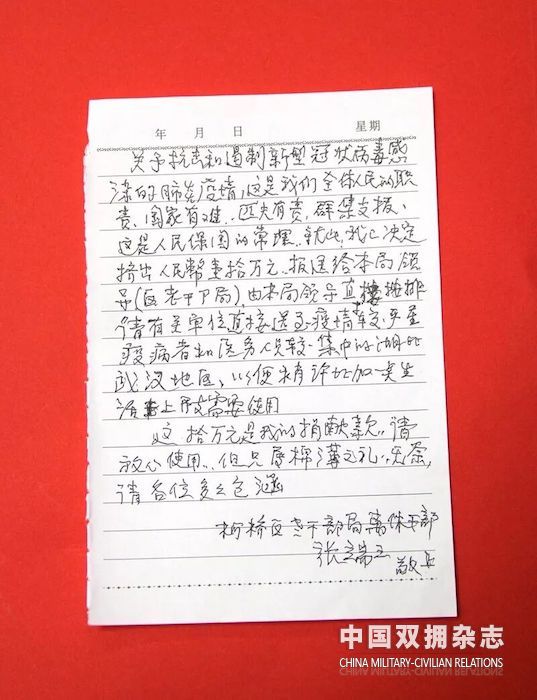 年 月 日 星期
关于抗击和遏制新型冠状病毒感
染的肺炎疫情,这是我们全体人民的职
责、国家有难、匹夫有责,群集支拨、
这是人民保国的常理、就此,我已决定
挤出人民幣壹拾万元、报送给本局领
导(区老干下局),由本局领导直接地排
请有关单位直接送到疫情较严重
疫病者和医务人员较集中的湖北
武汉地区,以便来有许加一点生
活上所需要使用
这拾万元是我的捐献款,请
放心使用、但只居棉薄之礼、失荼,
请各位多多包涵
柯桥区老干部局离休干部
张端 敬上
中国双拥杂志
CHINA MILITARY-CIVILIAN RELATIONS